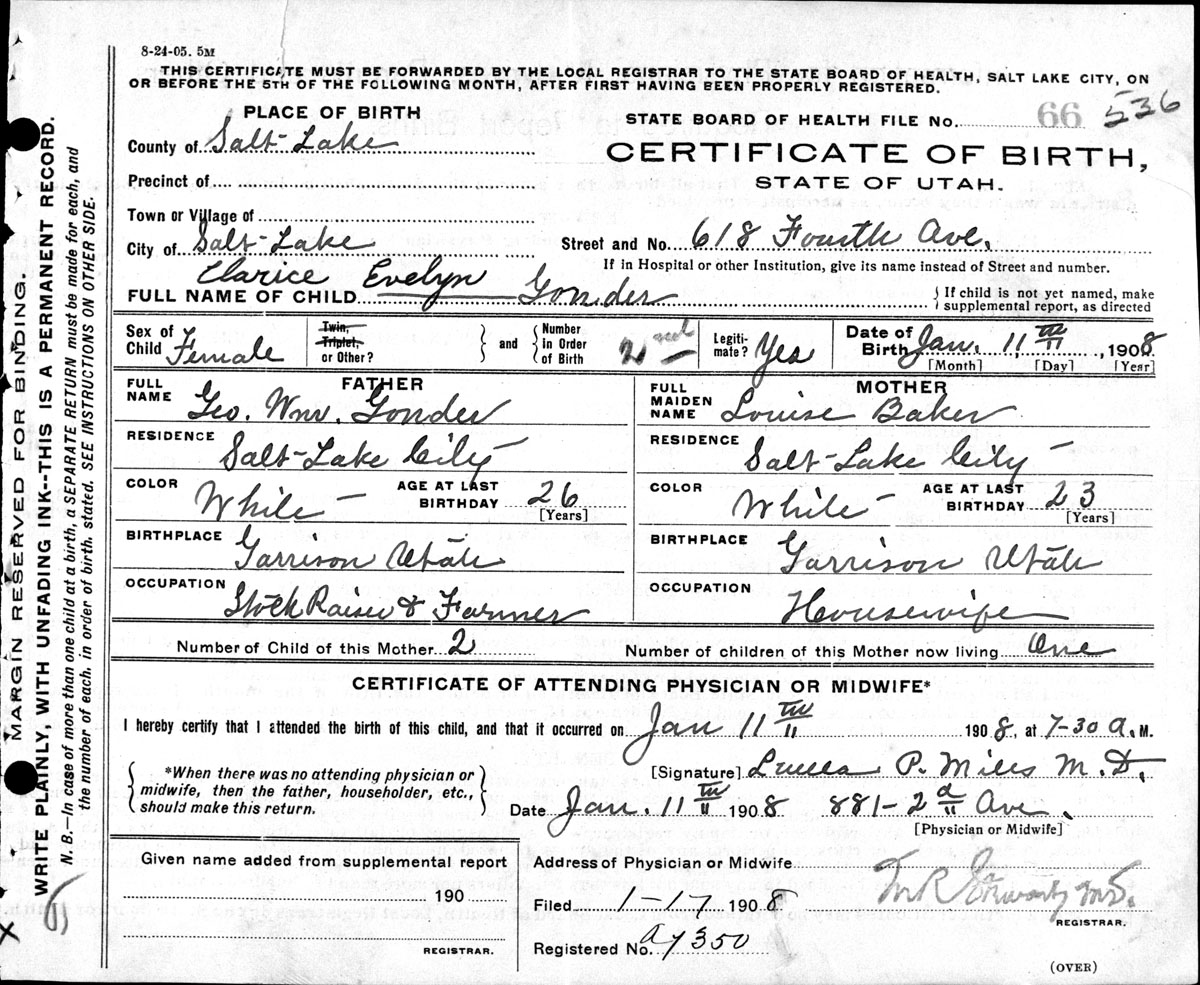 8-24-05. 5M
THIS CERTIFICATE MUST BE FORWARDED BY THE LOCAL REGISTRAR TO THE STATE BOARD OF HEALTH, SALT LAKE CITY, ON
OR BEFORE THE 5TH OF THE FOLLOWING MONTH, AFTER FIRST HAVING BEEN PROPERLY REGISTERED.
PLACE OF BIRTH
STATE BOARD OF HEALTH FILE No. 66 536
County of Salt Lake
CERTIFICATE OF BIRTH,
STATE OF UTAH.
Precinct of
Town or Village of
City of Salt Lake
Street and No. 618 Fourth Ave.
If in Hospital or other Institution, give its name instead of Street and number.
FULL NAME OF CHILD Clarice Evelyn Gonder
{ If child is not yet named, make
supplemental report, as directed
Sex of Child Female
Twin, Triplet, or Other?
and
Number in Order of Birth 2nd
Legitimate? Yes
Date of Birth Jan. 11th, 1908
[Month] [Day] [Year]
FATHER
FULL NAME Geo. Wm. Gonder
RESIDENCE Salt-Lake City
COLOR White
AGE AT LAST BIRTHDAY 26
[Years]
BIRTHPLACE Garrison Utah
OCCUPATION Stock Raiser & Farmer
MOTHER
FULL MAIDEN NAME Louise Baker
RESIDENCE Salt-Lake City
COLOR White
AGE AT LAST BIRTHDAY 23
[Years]
BIRTHPLACE Garrison Utah
OCCUPATION Housewife
Number of Child of this Mother 2
Number of children of this Mother now living One
CERTIFICATE OF ATTENDING PHYSICIAN OR MIDWIFE*
I hereby certify that I attended the birth of this child, and that it occurred on Jan 11th 1908, at 7-30 A. M.
*When there was no attending physician or
midwife, then the father, householder, etc.,
should make this return.
[Signature] Luella P. Miles M.D.
Date Jan. 11th 1908 881-2d Ave.
[Physician or Midwife]
Given name added from supplemental report
190
REGISTRAR.
Address of Physician or Midwife
Filed 1-17 1908
REGISTRAR.
Registered No. a7350
(OVER)
MARGIN RESERVED FOR BINDING.
WRITE PLAINLY, WITH UNFADING INK--THIS IS A PERMANENT RECORD.
N. B.—In case of more than one child at a birth, a SEPARATE RETURN must be made for each, and
the number of each, in order of birth, stated. SEE INSTRUCTIONS ON OTHER SIDE.